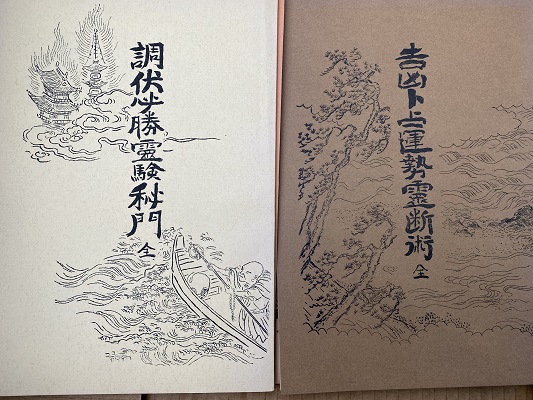 吉凶卜占運勢霊断術 全
調伏必勝靈驗秘門 全